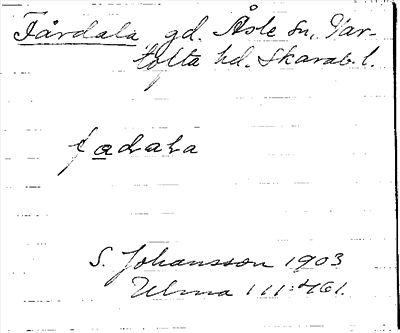 Fårdala gd. Åsle sn, Var-
tofta hd. Skarab. l.
fadala
S. Johansson 1903
Ulma 111:461.